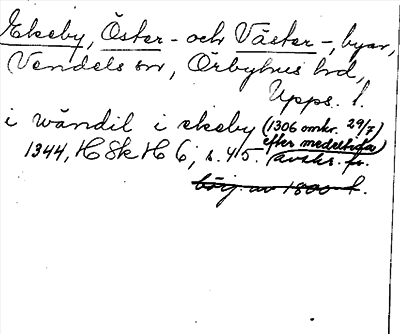 Ekeby, Öster- och Väster-, byar,
Vendels sn, Örbyhus hd,
Upps. l.
i wændil i ekeby (1306 omkr. 29/7)
1344, HSkH 6, s. 45. (efter medeltida
avskr. fr.
börj. av 1800-t.